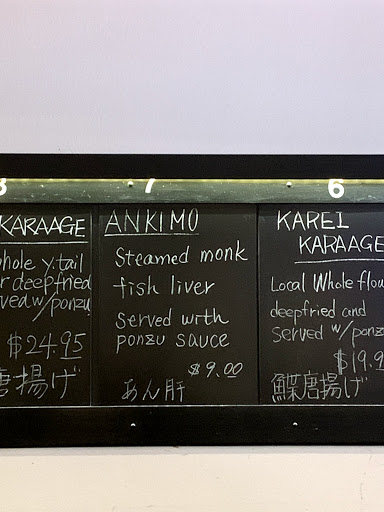 KARAAGE
hole y.tail
r deepfried
ved w/ponzu
$24.95
唐揚げ
7
ANKIMO
Steamed monk
fish liver
served with
ponzu sauce
$9.00
あん肝
6
KAREI
KARAAGE
Local Whole flou
deepfried and
served w/ponz
$19.9
鰈唐揚げ